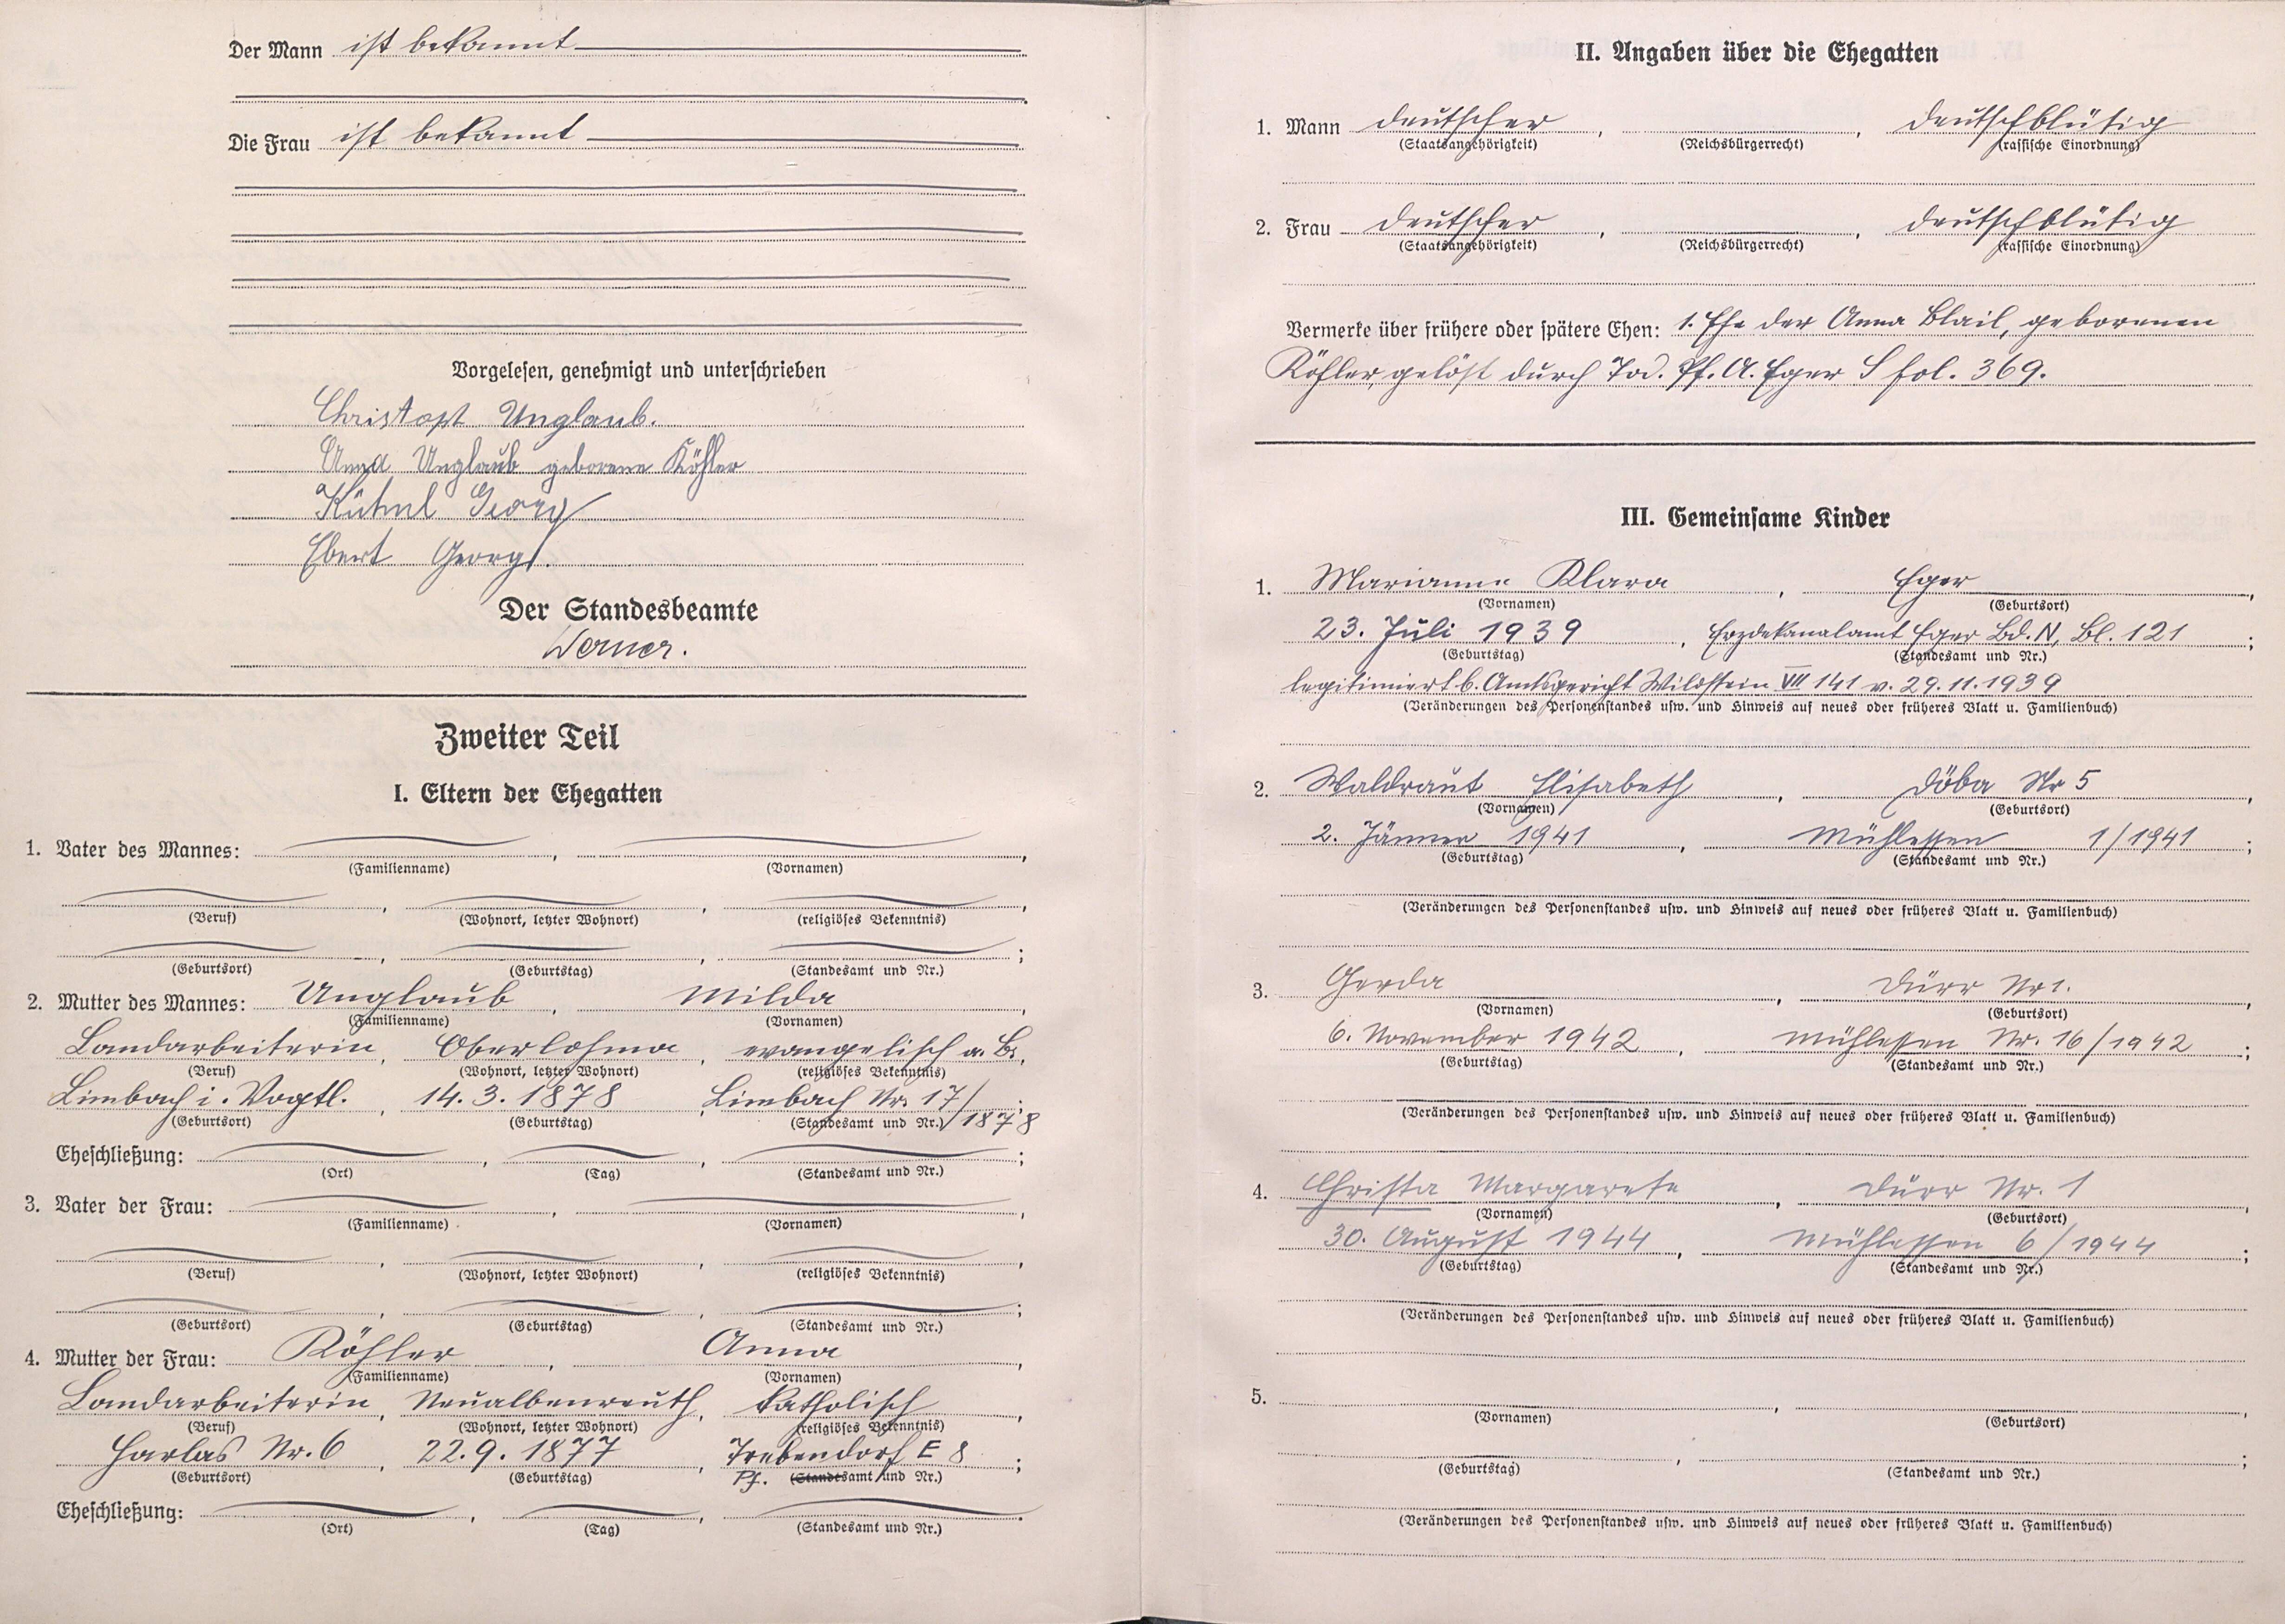 Der Mann ist bekannt
Die Frau ist bekannt
Vorgelesen, genehmigt und unterschrieben
Christoph Unglaub.
Anna Unglaub geborene Köhler
Kühnl Georg
Ebert Georg.
Der Standesbeamte
Werner.
Zweiter Teil
I. Eltern der Ehegatten
1. Vater des Mannes: , ,
(Familienname) (Vornamen)
, , ,
(Beruf) (Wohnort, letzter Wohnort) (religiöses Bekenntnis)
, , ;
(Geburtsort) (Geburtstag) (Standesamt und Nr.)
2. Mutter des Mannes: Unglaub , Milda ,
(Familienname) (Vornamen)
Landarbeiterin, Oberlohma, evangelisch a. B.,
(Beruf) (Wohnort, letzter Wohnort) (religiöses Bekenntnis)
Limbach i. Vogtl. , 14. 3. 1878 , Limbach Nr. 17/ ;
(Geburtsort) (Geburtstag) (Standesamt und Nr.) 1878
Eheschließung: , , ;
(Ort) (Tag) (Standesamt und Nr.)
3. Vater der Frau: , ,
(Familienname) (Vornamen)
, , ,
(Beruf) (Wohnort, letzter Wohnort) (religiöses Bekenntnis)
, , ;
(Geburtsort) (Geburtstag) (Standesamt und Nr.)
4. Mutter der Frau: Köhler , Anna ,
(Familienname) (Vornamen)
Landarbeiterin, Neualbenreuth, katholisch ,
(Beruf) (Wohnort, letzter Wohnort) (religiöses Bekenntnis)
Harlas Nr. 6 , 22. 9. 1877 , Trebendorf E 8 ;
(Geburtsort) (Geburtstag) Pf. (Standesamt und Nr.)
Eheschließung: , , .
(Ort) (Tag) (Standesamt und Nr.)
II. Angaben über die Ehegatten
1. Mann deutscher , , deutschblütig
(Staatsangehörigkeit) (Reichsbürgerrecht) (rassische Einordnung)
2. Frau deutscher , , deutschblütig
(Staatsangehörigkeit) (Reichsbürgerrecht) (rassische Einordnung)
Vermerke über frühere oder spätere Ehen: 1. Ehe der Anna Blail, geborenen
Köhler, gelöst durch Tod. Pf. A. Eger S fol. 369.
III. Gemeinsame Kinder
1. Marianne Klara , Eger ,
(Vornamen) (Geburtsort)
23. Juli 1939 , Erzdekanalamt Eger Bd. N, Bl. 121 ;
(Geburtstag) (Standesamt und Nr.)
legitimiert b. Amtsgericht Wildstein VII 141 v. 29. 11. 1939
(Veränderungen des Personenstandes usw. und Hinweis auf neues oder früheres Blatt u. Familienbuch)
2. Waldraut Elisabeth , Döba Nr 5 ,
(Vornamen) (Geburtsort)
2. Jänner 1941 , Mühlessen 1/1941 ;
(Geburtstag) (Standesamt und Nr.)
(Veränderungen des Personenstandes usw. und Hinweis auf neues oder früheres Blatt u. Familienbuch)
3. Gerda , Dürr Nr 1. ,
(Vornamen) (Geburtsort)
6. November 1942 , Mühlessen Nr. 16/1942 ;
(Geburtstag) (Standesamt und Nr.)
(Veränderungen des Personenstandes usw. und Hinweis auf neues oder früheres Blatt u. Familienbuch)
4. Christa Margarete , Dürr Nr. 1 ,
(Vornamen) (Geburtsort)
30. August 1944 , Mühlessen 6/1944 ;
(Geburtstag) (Standesamt und Nr.)
(Veränderungen des Personenstandes usw. und Hinweis auf neues oder früheres Blatt u. Familienbuch)
5. , ,
(Vornamen) (Geburtsort)
, ;
(Geburtstag) (Standesamt und Nr.)
(Veränderungen des Personenstandes usw. und Hinweis auf neues oder früheres Blatt u. Familienbuch)